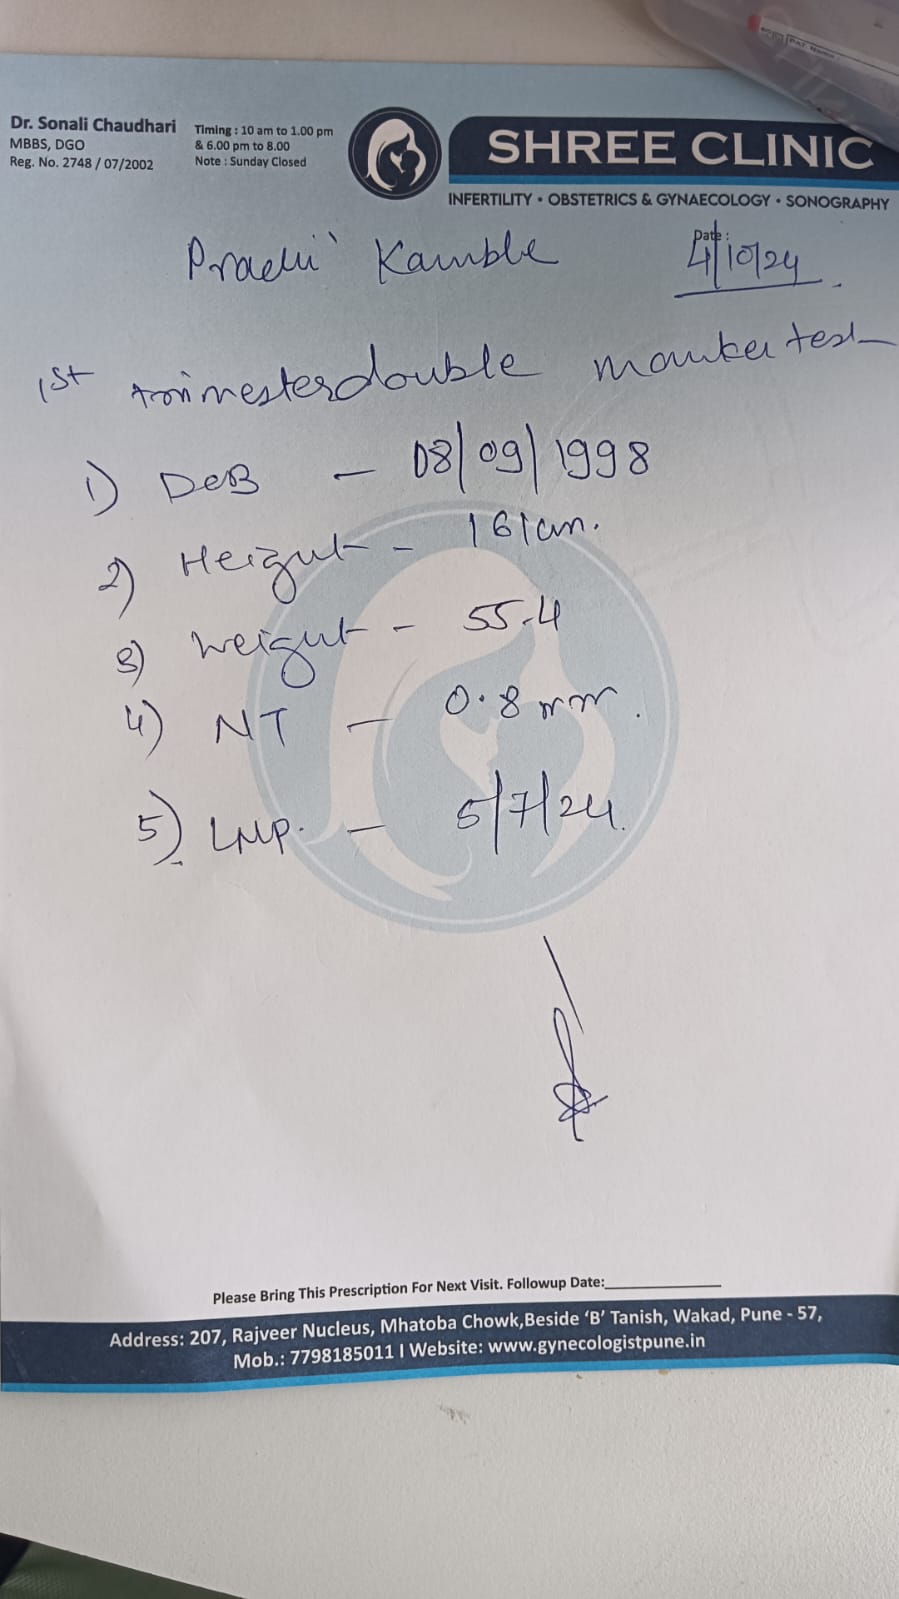 Dr. Sonali Chaudhari
MBBS, DGO
Reg. No. 2748 / 07/2002
Timing : 10 am to 1.00 pm
& 6.00 pm to 8.00
Note : Sunday Closed
SHREE CLINIC
INFERTILITY • OBSTETRICS & GYNAECOLOGY • SONOGRAPHY
Prachi Kamble
Date : 4/10/24
1st trimester double marker test
1) DOB - 08/09/1998
2) Height - 161cm.
3) Weight - 55.4
4) NT - 0.8 mm.
5) LMP. - 5/7/24.
Please Bring This Prescription For Next Visit. Followup Date:
Address: 207, Rajveer Nucleus, Mhatoba Chowk,Beside ‘B’ Tanish, Wakad, Pune - 57,
Mob.: 7798185011 I Website: www.gynecologistpune.in